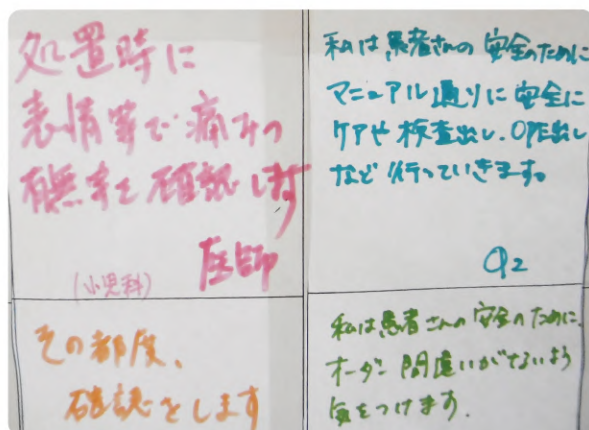 処置時に
表情等で痛みの
有無を確認します
医師
(小児科)
私は患者さんの安全のために
マニュアル通りに安全に
ケアや検査出し、OPE出し
など行っていきます。
その都度、
確認をします
私は患者さんの安全のために、
オーダー間違いがでないよう
気をつけます.